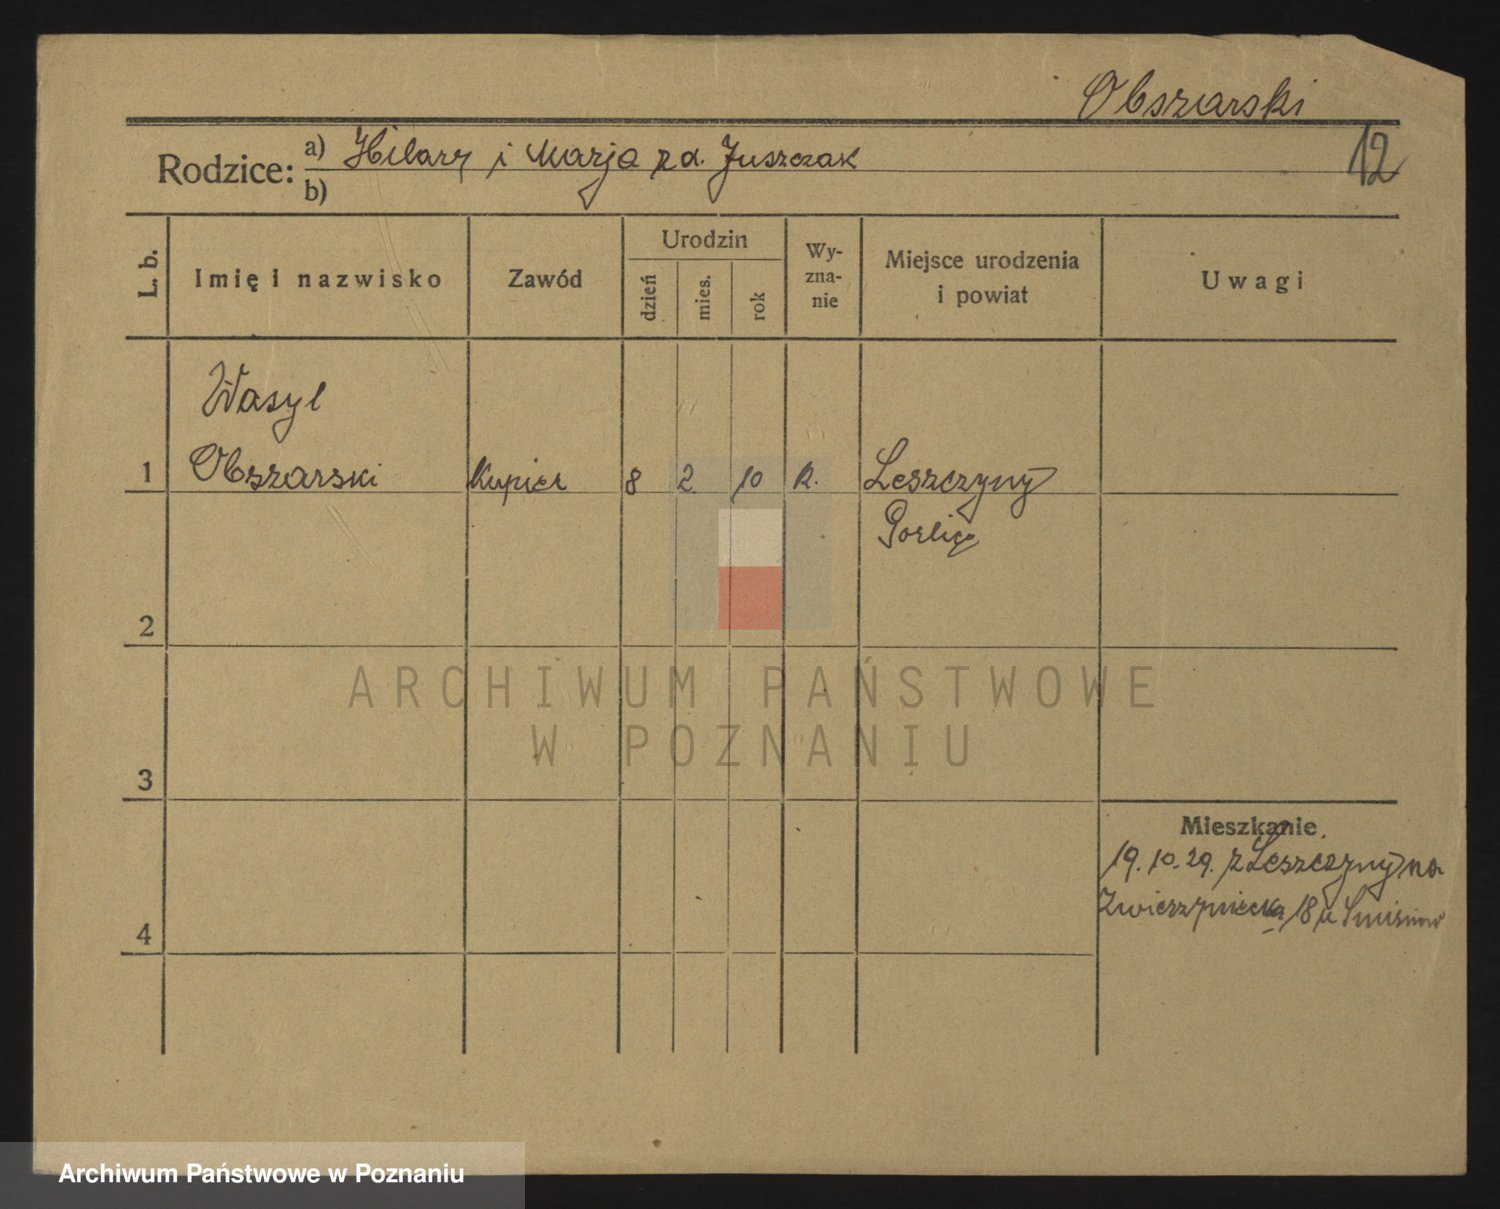 Obszarski
12
Rodzice: a) Hilary i Marja z d. Juszczak
b)
L. b.
Imię i nazwisko
Zawód
Urodzin
dzień
mies.
rok
Wy-
zna-
nie
Miejsce urodzenia
i powiat
Uwagi
Wasyl
1 Obszarski Kupiec 8 2 10 R. Leszczyny
Gorlice
2
3
Mieszkanie
19.10.29. z Leszczyny na
Zwierzyniecka 18 u
4
ARCHIWUM PAŃSTWOWE
W POZNANIU
Archiwum Państwowe w Poznaniu